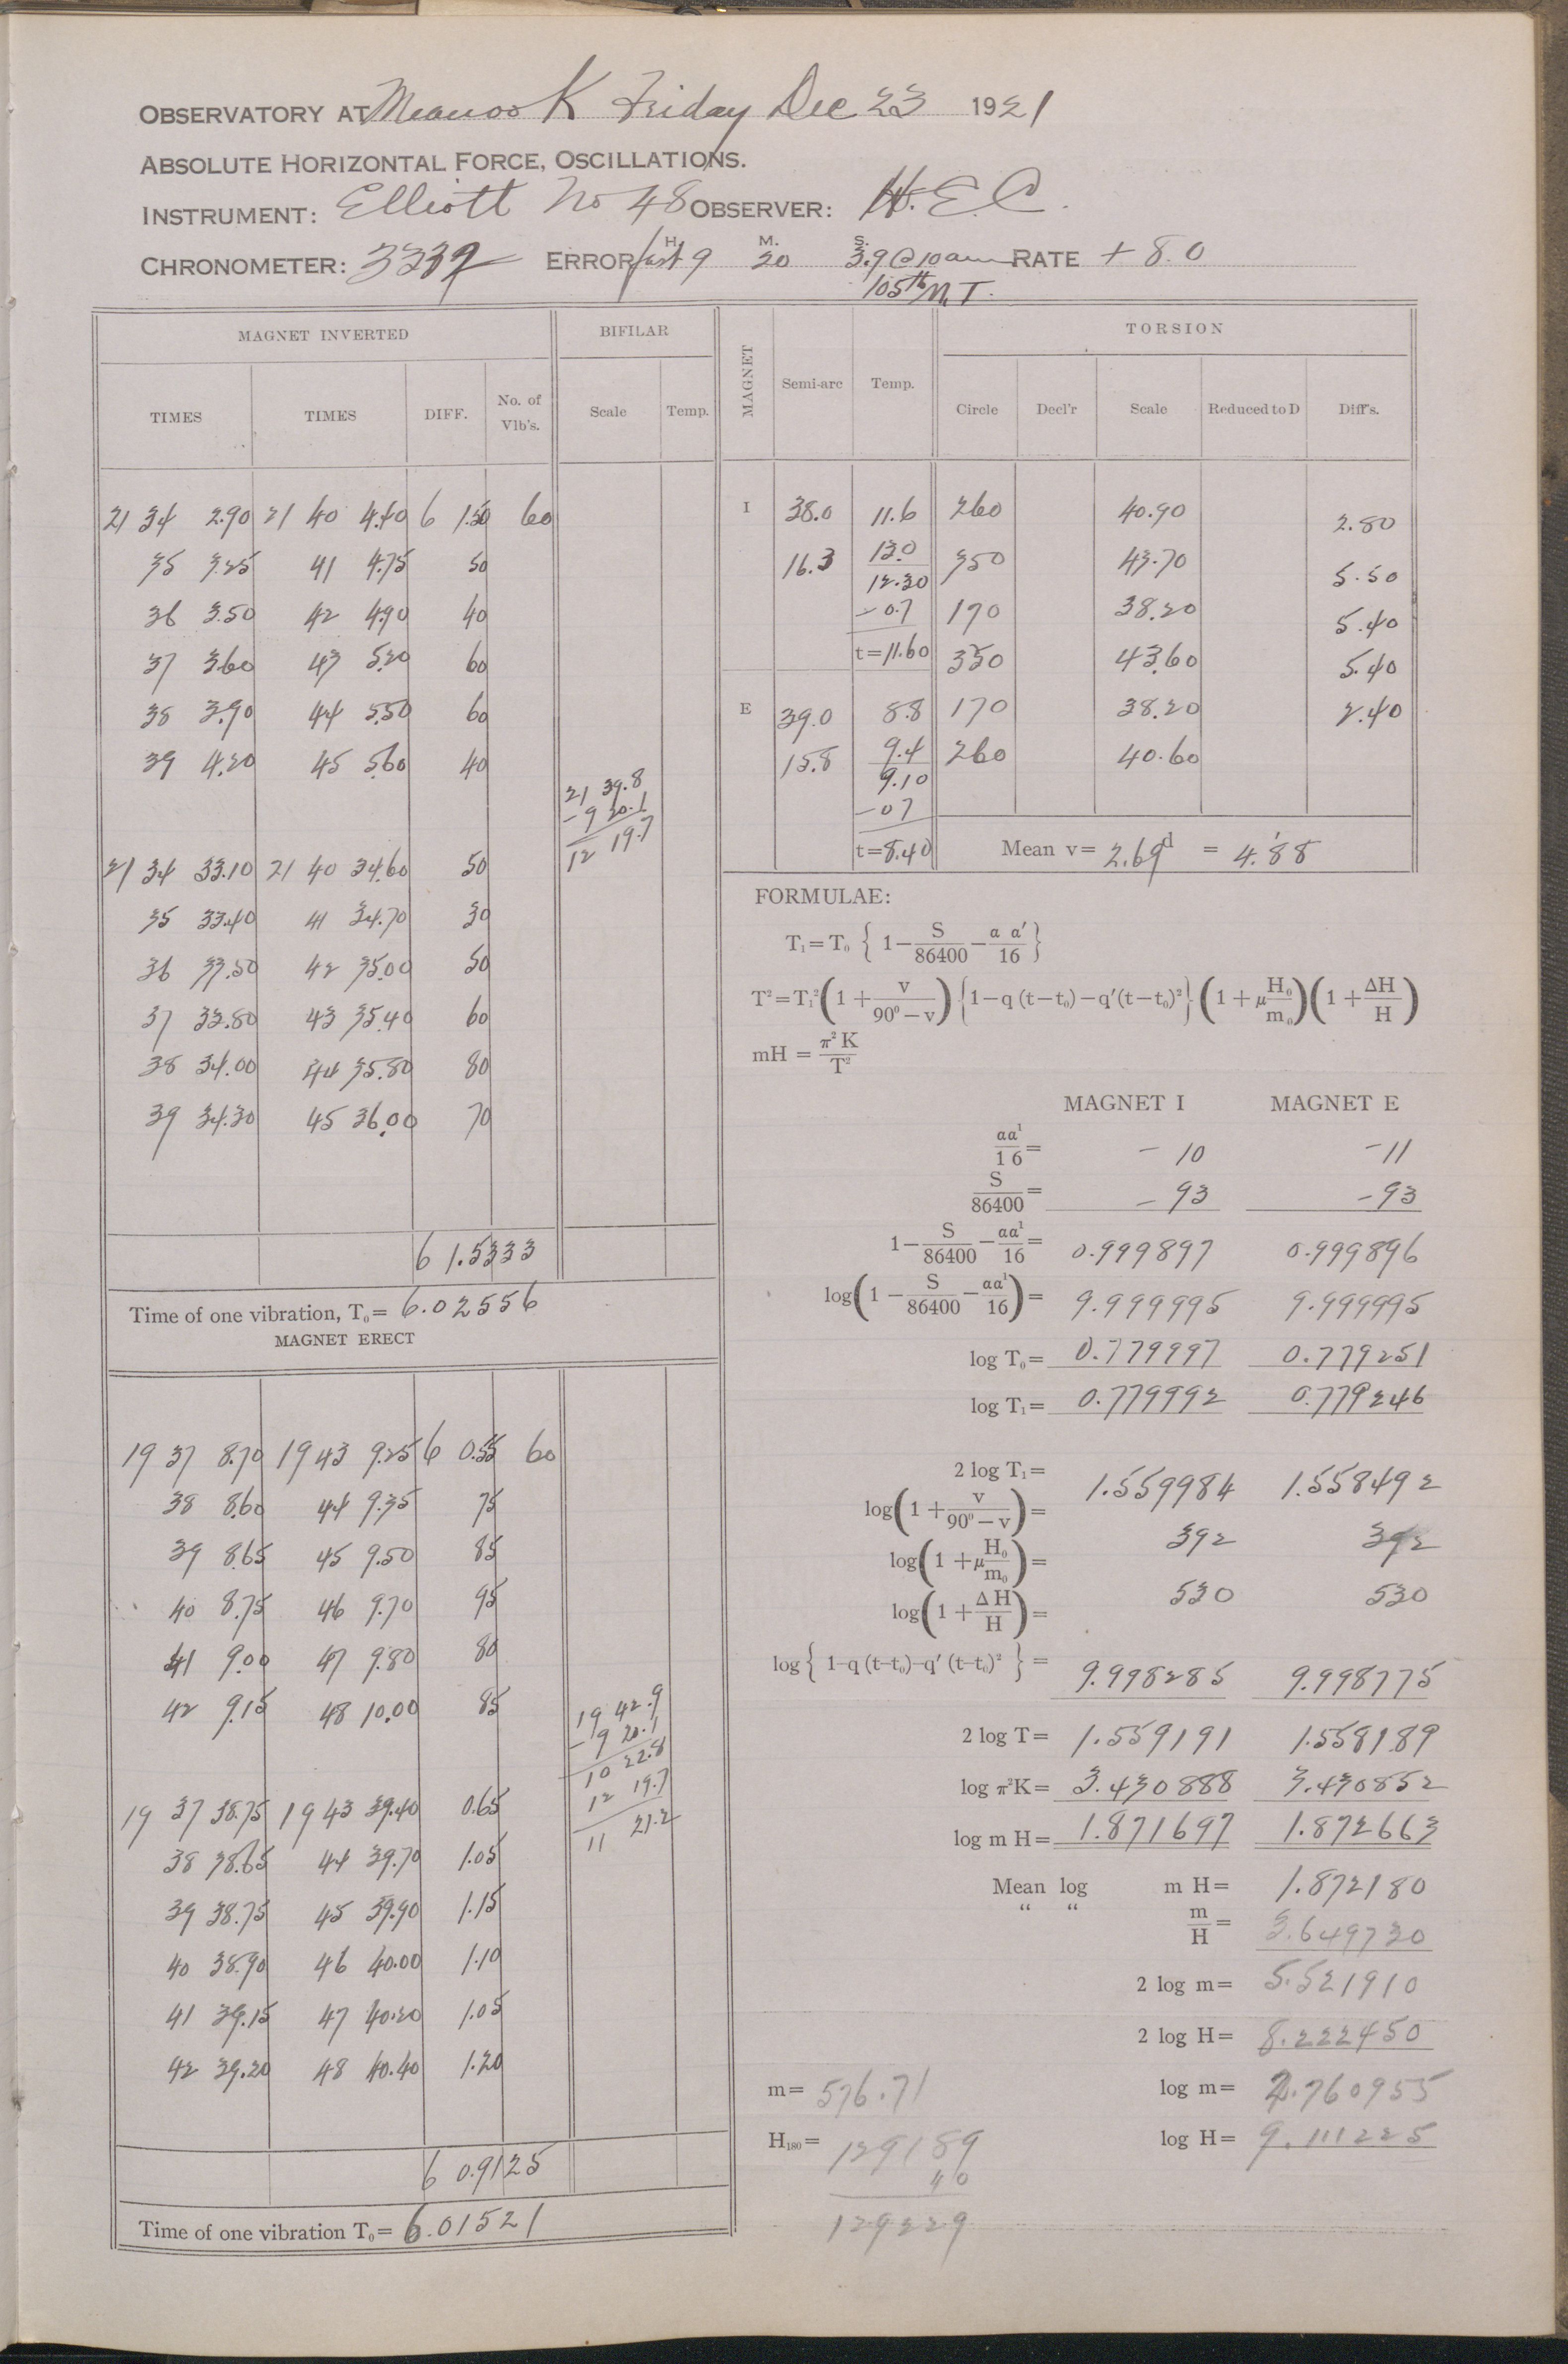 OBSERVATORY AT Meanook Friday Dec 23 1921
ABSOLUTE HORIZONTAL FORCE, OSCILLATIONS.
INSTRUMENT: Elliott No 48 OBSERVER: H.E.C.
CHRONOMETER: 3339 ERROR fast H. 9 M. 20 S. 3.9 @ 10 am RATE + 8.0
105th M.T.
MAGNET INVERTED BIFILAR
TIMES TIMES DIFF. No. of Vlb's. Scale Temp.
21 34 2.90 21 40 4.40 6 1.50 60
35 3.25 41 4.75 50
36 3.50 42 4.90 40
37 3.60 43 5.20 60
38 3.90 44 5.50 60
39 4.20 45 5.60 40
21 39.8
- 9 20.1
12 19.7
21 34 33.10 21 40 34.60 50
35 33.40 41 34.70 30
36 33.50 42 35.00 50
37 33.80 43 35.40 60
38 34.00 44 35.80 80
39 34.30 45 36.00 70
6 1.5333
Time of one vibration, T₀= 6.02556
MAGNET ERECT
19 37 8.70 19 43 9.25 6 0.55 60
38 8.60 44 9.35 75
39 8.65 45 9.50 85
40 8.75 46 9.70 95
41 9.00 47 9.80 80
42 9.15 48 10.00 85
19 42.9
- 9 20.1
10 22.8
12 19.7
11 21.2
19 37 38.75 19 43 39.40 0.65
38 38.65 44 39.70 1.05
39 38.75 45 39.90 1.15
40 38.90 46 40.00 1.10
41 39.15 47 40.20 1.05
42 39.20 48 40.40 1.20
6 0.9125
Time of one vibration T₀= 6.01521
MAGNET Semi-arc Temp. TORSION
Circle Decl'r Scale Reduced to D Diff's.
I 38.0 11.6 260 40.90 2.80
16.3 13.0 350 43.70 5.50
12.30
-0.7 170 38.20 5.40
t=11.60 350 43.60 5.40
E 39.0 8.8 170 38.20 2.40
15.8 9.4 260 40.60
9.10
-07
t=8.40 Mean v= 2.69ᵈ = 4.'88
FORMULAE:
T₁=T₀ { 1—S/86400—α α'/16 }
T²=T₁²(1+v/90°—v) {1—q (t—t₀)—q'(t—t₀)²} (1+μ H₀/m₀)(1+ΔH/H)
mH = π² K/T²
MAGNET I MAGNET E
αα¹/16= - 10 -11
S/86400= - 93 -93
1—S/86400—αα¹/16= 0.999897 0.999896
log(1—S/86400—αα¹/16)= 9.999995 9.999995
log T₀= 0.779997 0.779251
log T₁= 0.779992 0.779246
2 log T₁= 1.559984 1.558492
log(1+v/90°—v)= 392 392
log(1+μ H₀/m₀)= 530 530
log(1+ΔH/H)=
log{ 1—q (t—t₀)—q' (t—t₀)² } = 9.998285 9.998775
2 log T= 1.559191 1.558189
log π²K= 3.430888 3.430852
log m H= 1.871697 1.872663
Mean log m H= 1.872180
“ “ m/H= 3.649730
2 log m= 5.521910
2 log H= 8.222450
m= 576.71 log m= 2.760955
H₁₈₀= 129189 log H= 9.111225
40
129229